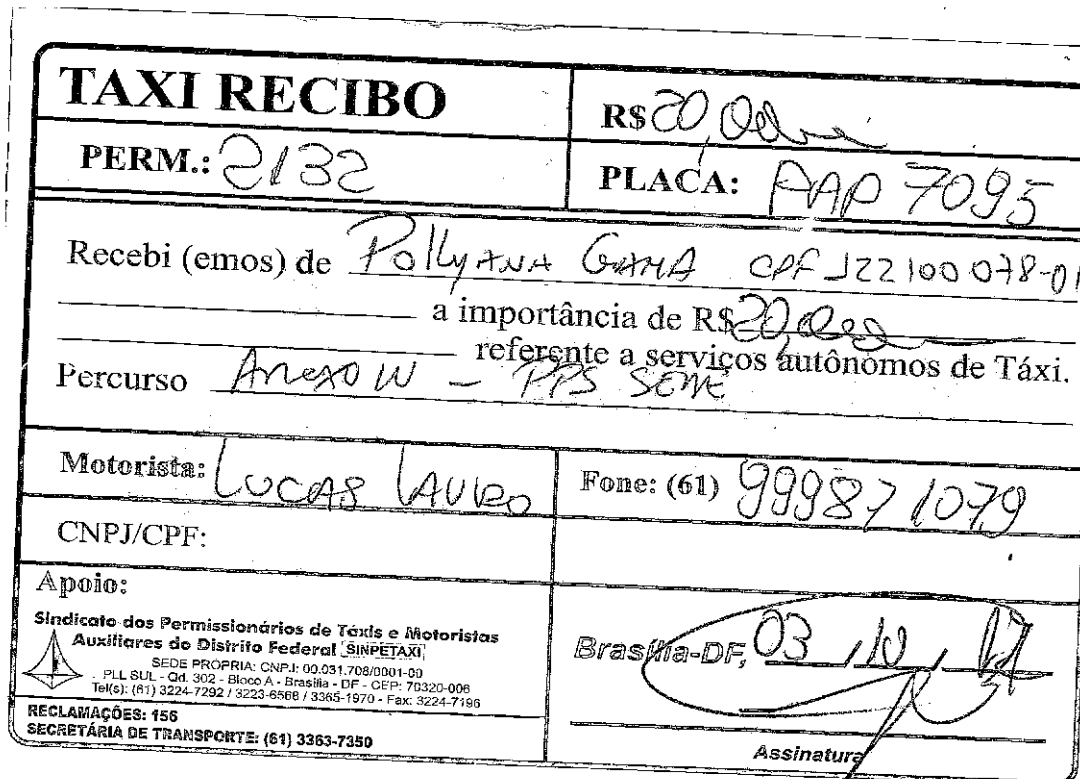 TAXI RECIBO
R$ 20,00
PERM.: 2132
PLACA: PAP 7095
Recebi (emos) de Pollyana Gama CPF 122100078-01
a importância de R$ 20,00
referente a serviços autônomos de Táxi.
Percurso Anexo IV - PPS
Motorista: Lucas Lauro
Fone: (61) 999871079
CNPJ/CPF:
Apoio:
Sindicato dos Permissionários de Táxis e Motoristas
Auxiliares do Distrito Federal SINPETAXI
SEDE PRÓPRIA: CNPJ: 00.031.708/0001-00
PLL SUL - Qd. 302 - Bloco A - Brasília - DF - CEP: 70320-006
Tel(s): (61) 3224-7292 / 3223-6568 / 3365-1970 - Fax: 3224-7196
RECLAMAÇÕES: 156
SECRETÁRIA DE TRANSPORTE: (61) 3363-7350
Brasília-DF, 03 / 10 / 17
Assinatura